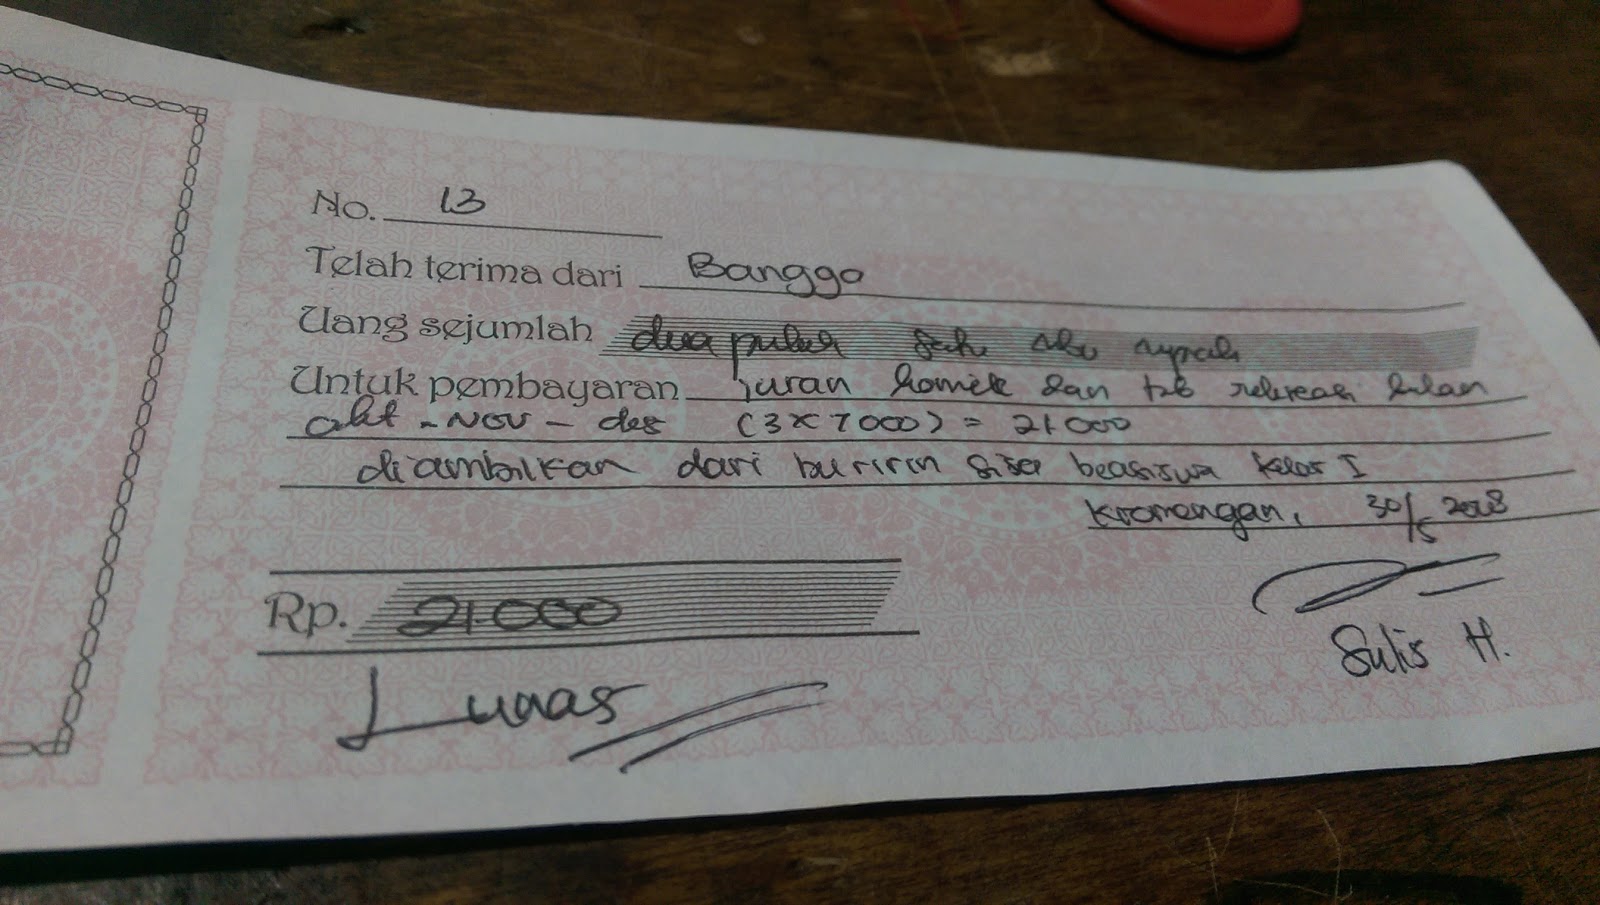 No. 13
Telah terima dari Bangga
Uang sejumlah dua puluh satu ribu rupiah
Untuk pembayaran iuran komite dan tab rekreasi bulan
okt - NOV - des (3x7000) = 21.000
diambilkan dari bu ririn sisa beasiswa kelas I
Kromengan, 30/5 2018
Rp. 21.000
Sulis H.
Lunas